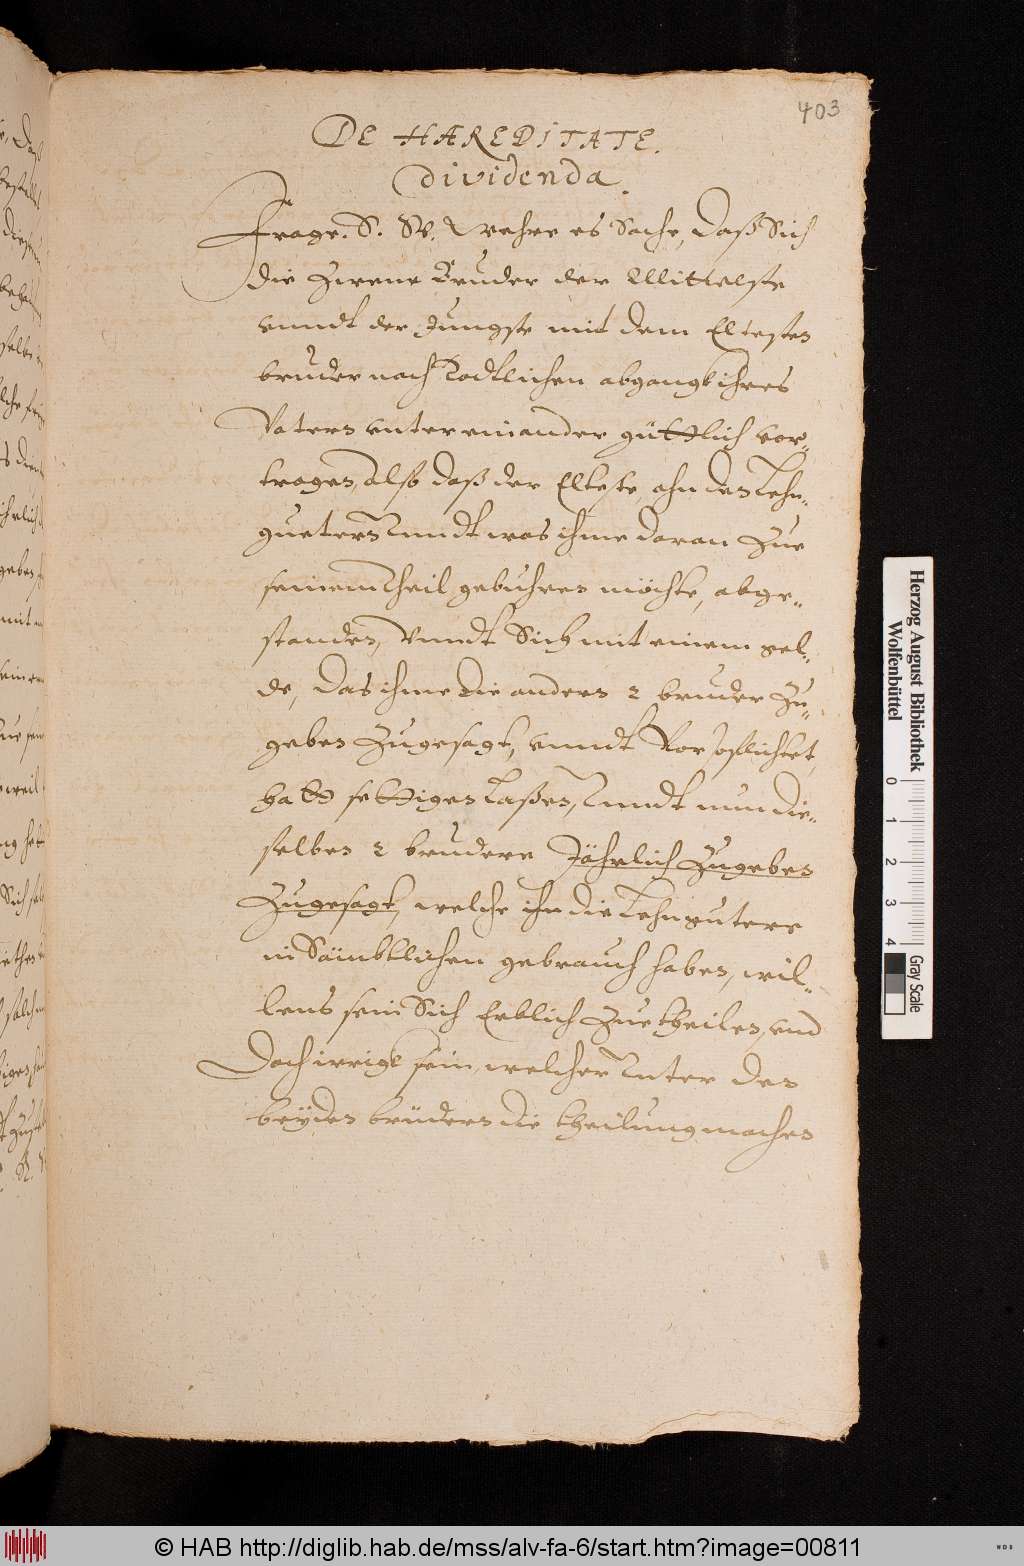 403
DE HÆREDITATE.
Dividenda.
Frage. S. W. Wehre es Sache, daß Sich
die Zwene Bruder der Mittelste
vnndt der Jungste mit dem Eltesten
bruder nach Todtlichen abgangk ihres
Vaters vnter einander güttlich vor-
tragen, also daß der Elteste, ahn den Lehn-
guetern Vnndt was ihme daran Zue
seinem Theil gebuhren möchte, abge-
standen, Vnndt Sich mit einem gel-
de, das ihme die andern 2 bruder Zu-
geben Zugesagt, vnndt Vorpflichtet,
hatt settigen Laßen, Vnndt nun die-
selben 2 brudere Jährlich Zugeben
Zugesagt, welche ihn die Lehngutere
in Sämbtlichen gebrauch haben, wil-
lens sein Sich Erblich Zue theilen, vnd
Doch irrigk sein, welcher Vnter den
beÿden brüdern die theilung machen
Herzog August Bibliothek
Wolfenbüttel
0 1 2 3 4
Gray Scale
© HAB http://diglib.hab.de/mss/alv-fa-6/start.htm?image=00811